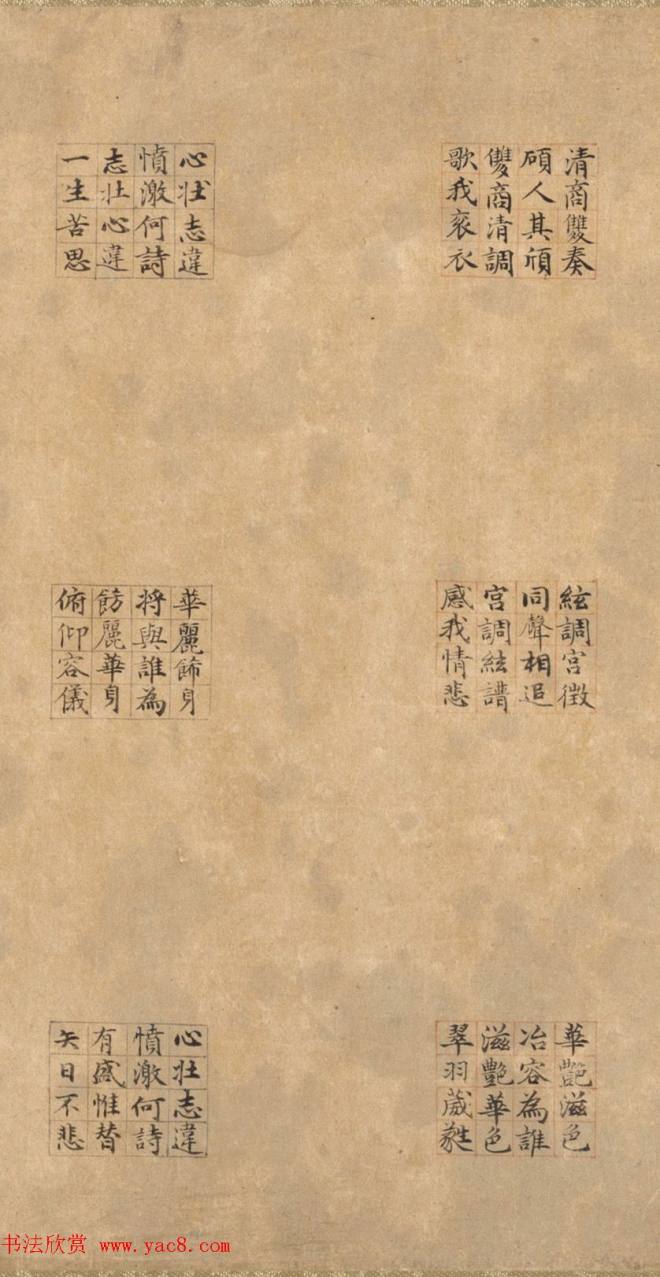 清商雙奏
碩人其頎
雙商清調
歌我袞衣
絃調宮徵
同聲相追
宮調絃譜
感我情悲
華艷滋色
冶容為誰
滋艷華色
翠羽葳蕤
心壯志違
憤激何詩
志壯心違
一生苦思
華麗飾身
將與誰為
飾麗華身
俯仰容儀
心壯志違
憤激何詩
有盛惟替
矢日不悲
书法欣赏 www.yac8.com